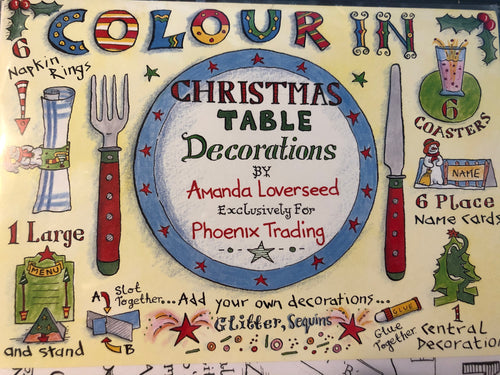 COLOUR IN
6
Napkin Rings
CHRISTMAS
TABLE
Decorations
BY
Amanda Loverseed
Exclusively For
Phoenix Trading
6
COASTERS
NAME
6 Place
Name Cards
1 Large
MENU
and stand
A
Slot
Together...
B
Add your own decorations...
Glitter, Sequins
GLUE
Glue
Together.
1
Central
Decoration